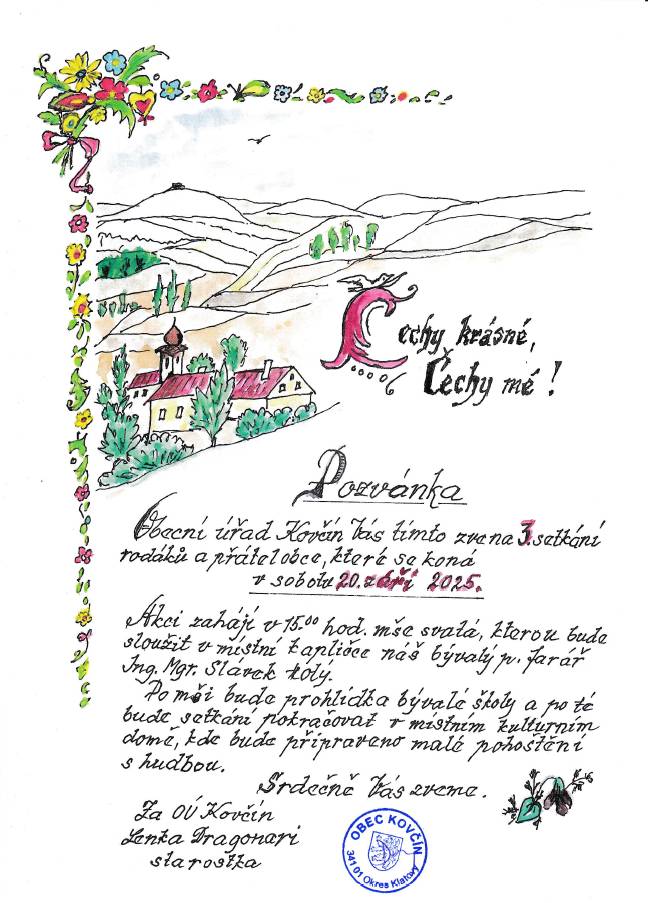 Čechy krásné,
Čechy mé!
Pozvánka
Obecní úřad Kovčín Vás tímto zve na 3. setkání
rodáků a přátel obce, které se koná
v sobotu 20. září 2025.
Akci zahájí v 15.00 hod. mše svatá, kterou bude
sloužit v místní kapličce náš bývalý p. farář
Ing. Mgr. Slávek Holý.
Po mši bude prohlídka bývalé školy a po té
bude setkání pokračovat v místním kulturním
domě, kde bude připraveno malé pohoštění
s hudbou.
Srdečně Vás zveme.
Za OÚ Kovčín
Lenka Dragonari
starostka
OBEC KOVČÍN
341 01 Okres Klatovy